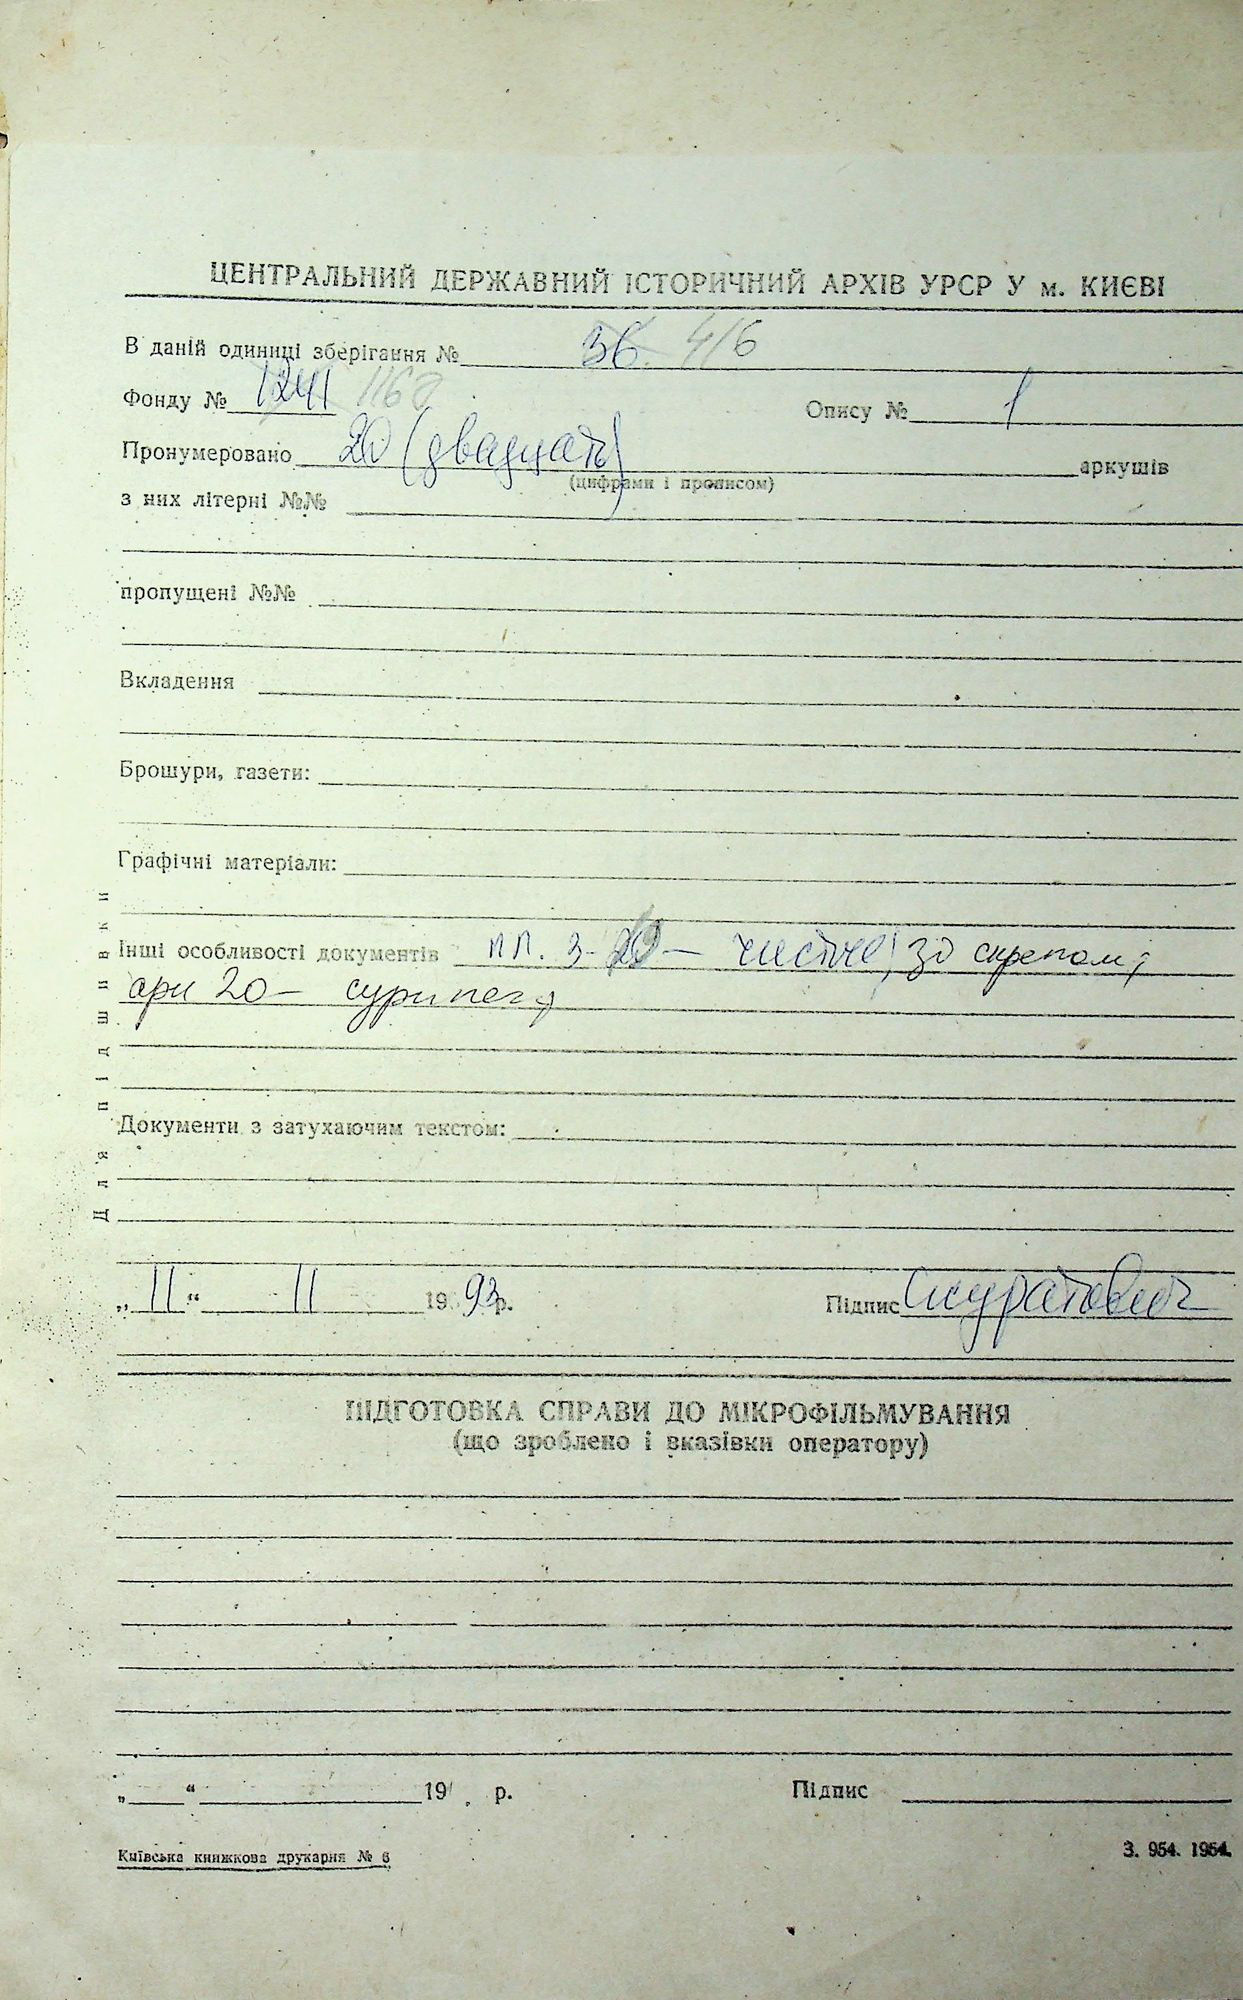 ЦЕНТРАЛЬНИЙ ДЕРЖАВНИЙ ІСТОРИЧНИЙ АРХІВ УРСР У м. КИЄВІ
В даній одиниці зберігання № 36 416
Фонду № 1241 Опису № 1
Пронумеровано 20 (двадцать) аркушів
(цифрами і прописом)
з них літерні №№
пропущені №№
Вкладення
Брошури, газети:
Графічні матеріали:
Інші особливості документів
20 —
Документи з затухаючим текстом:
„ 11 “ 11 1993 р. Підпис Скуратович
Для підшивки
ПІДГОТОВКА СПРАВИ ДО МІКРОФІЛЬМУВАННЯ
(що зроблено і вказівки оператору)
„ “ 19 р. Підпис
Київська книжкова друкарня № 6 З. 954. 1954.